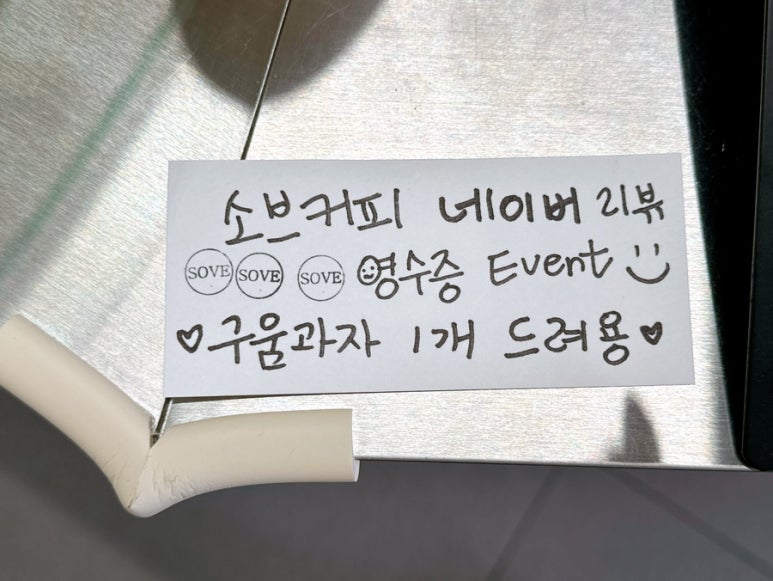 소브커피 네이버 리뷰
SOVE SOVE SOVE 영수증 Event
구움과자 1개 드려용